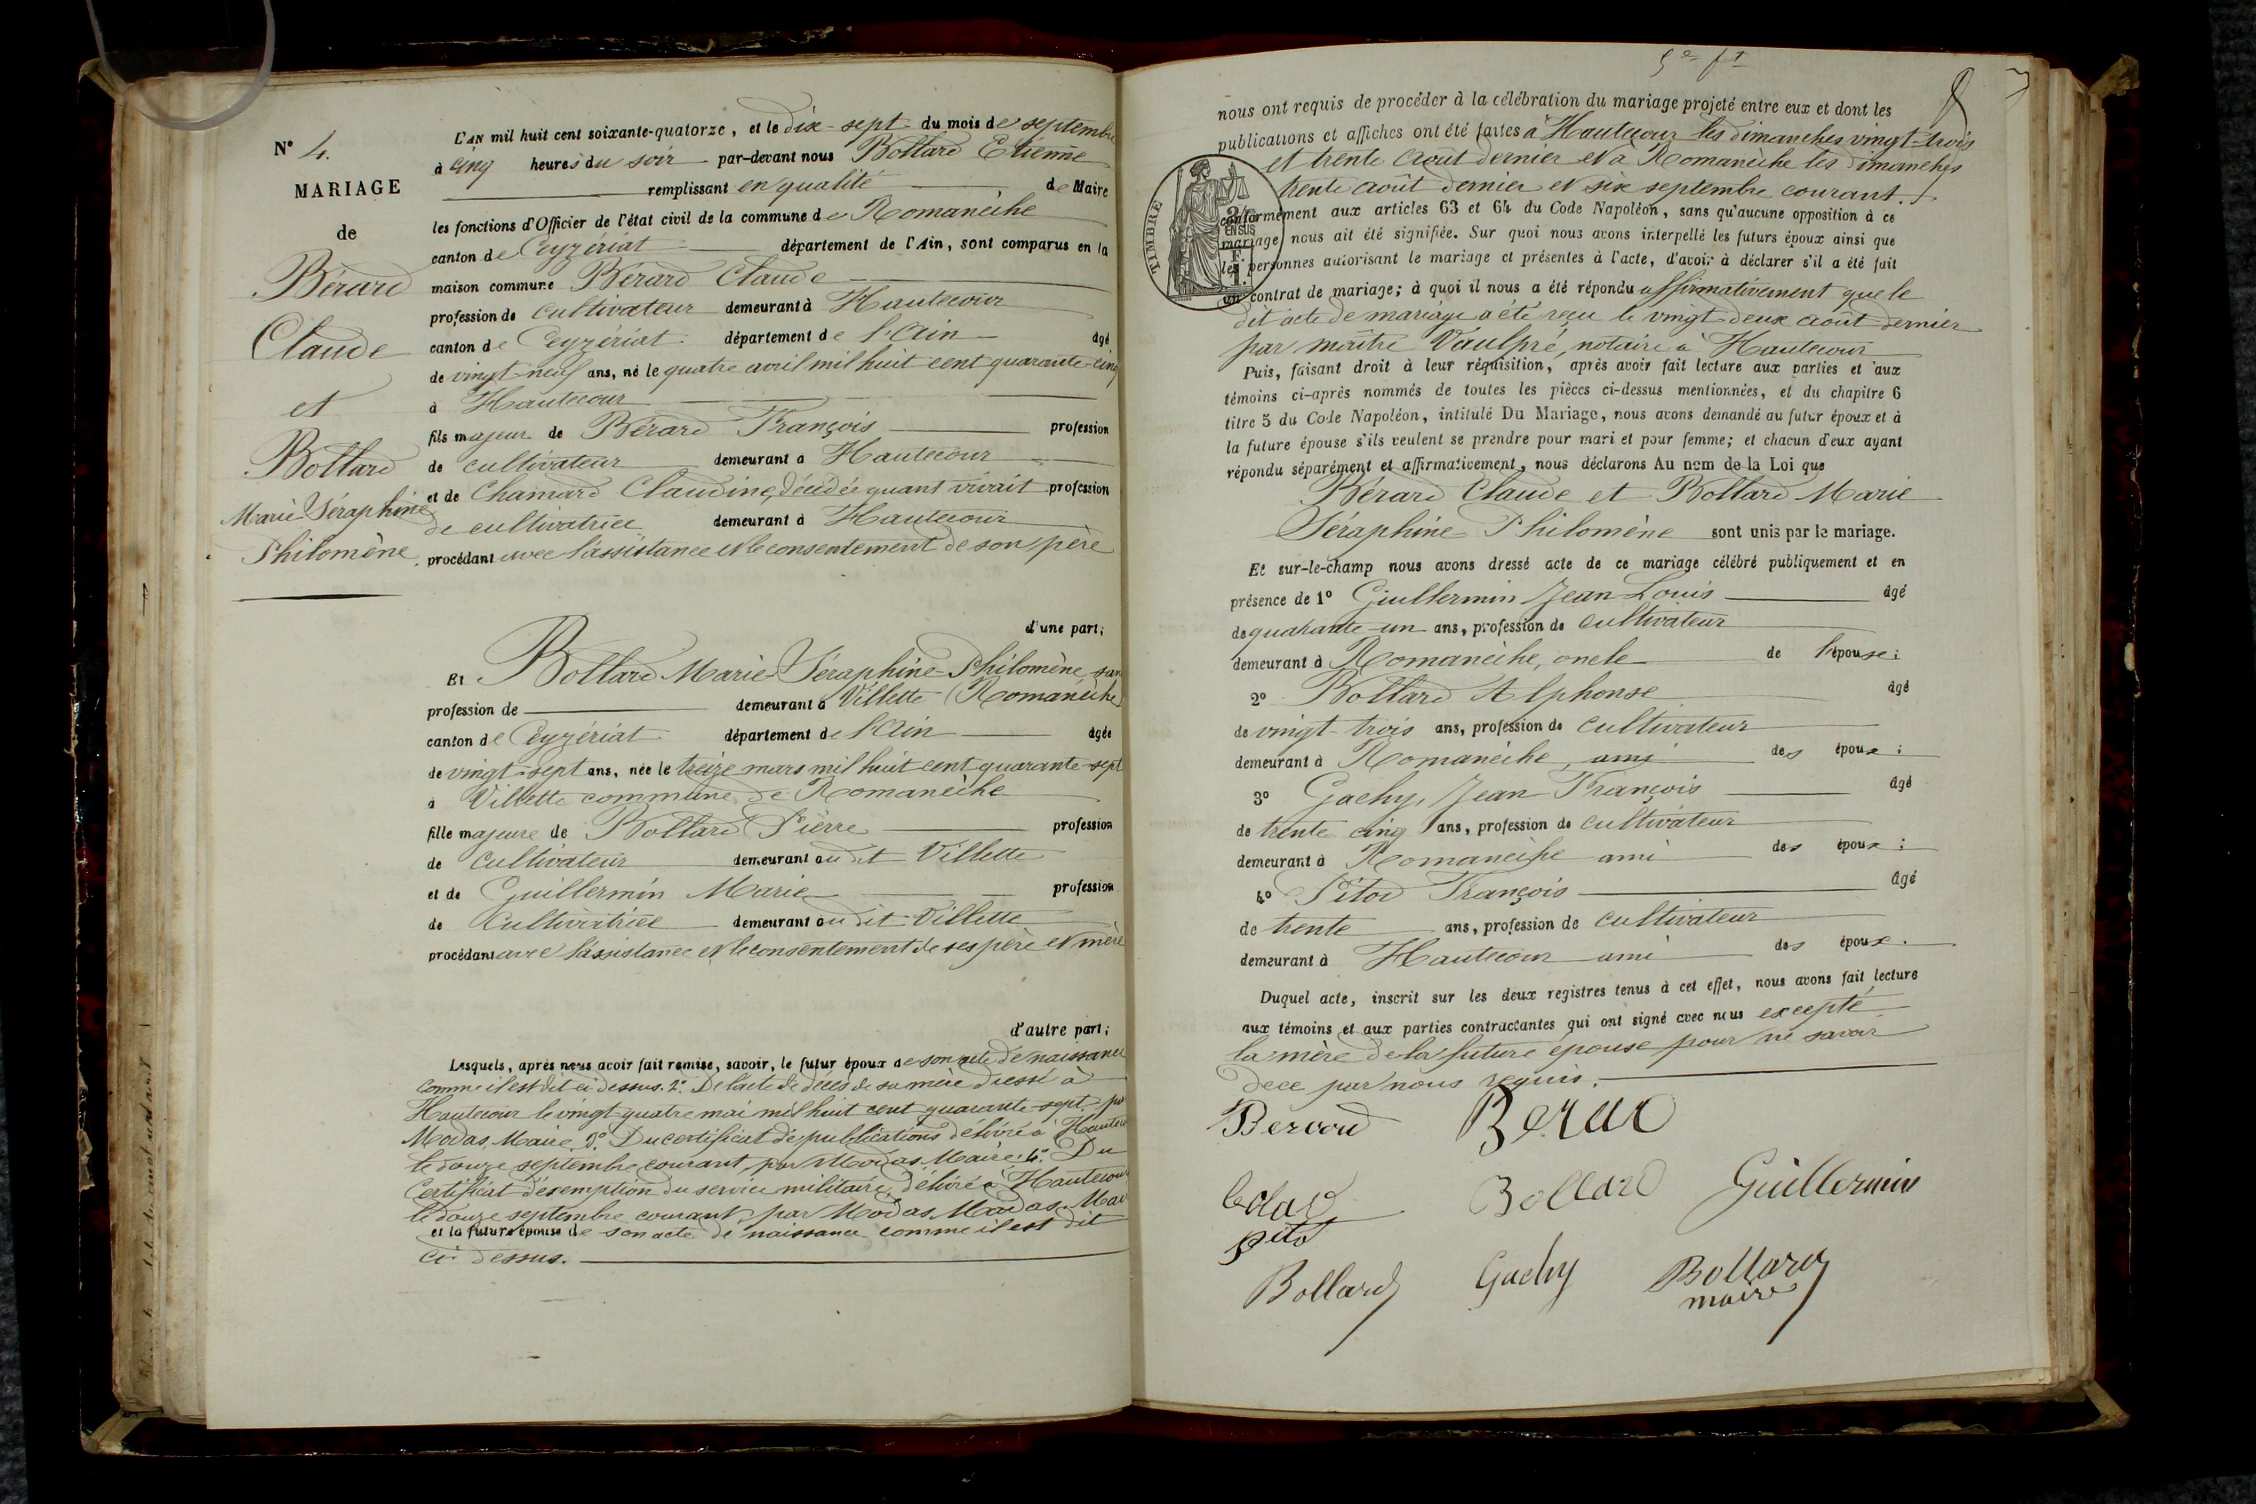 N° 4.
MARIAGE
de
Bérard
Claude
et
Bollard
Marie Séraphine
Philomène
L'AN mil huit cent soixante-quatorze, et le dix-sept du mois de septembre
à cinq heures du soir par-devant nous Bollard Etienne
remplissant en qualité de Maire
les fonctions d'Officier de l'état civil de la commune de Romanèche
canton de Ceyzériat département de l'Ain, sont comparus en la
maison commune Bérard Claude
profession de cultivateur demeurant à Hautecour
canton de Ceyzériat département de l'Ain âgé
de vingt-neuf ans, né le quatre avril mil huit cent quarante-cinq
à Hautecour
fils majeur de Bérard François profession
de cultivateur demeurant à Hautecour
et de Chanard Claudine, décédée quant vivait profession
de cultivatrice demeurant à Hautecour
procédant avec l'assistance et le consentement de son père
d'une part;
Et Bollard Marie Séraphine Philomène, sans
profession de demeurant à Villette (Romanèche)
canton de Ceyzériat département de l'Ain âgée
de vingt-sept ans, née le treize mars mil huit cent quarante-sept
à Villette commune de Romanèche
fille majeure de Bollard Pierre profession
de cultivateur demeurant au dit Villette
et de Guillermin Marie profession
de cultivatrice demeurant au dit Villette
procédant avec l'assistance et le consentement de ses père et mère
d'autre part;
Lesquels, après nous avoir fait remise, savoir, le futur époux de son acte de naissance
comme il est dit ci dessus. 2° De l'acte de décès de sa mère dressé à
Hautecour le vingt quatre mai mil huit cent quarante-sept par
Modas, Maire. 3° Du certificat de publications délivré à Hautecour
le douze septembre courant, par Modas, Maire. 4° Du
Certificat d'exemption du service militaire, délivré à Hautecour
le douze septembre courant, par Modas Modas Mai
et la future épouse de son acte de naissance comme il est dit
ci dessus.
nous ont requis de procéder à la célébration du mariage projeté entre eux et dont les
publications et affiches ont été faites à Hautecour les dimanches vingt-trois
et trente août dernier et à Romanèche les dimanches
trente août dernier et six septembre courant.
TIMBRE
2/10
EN SUS
1 F.
conformément aux articles 63 et 64 du Code Napoléon, sans qu'aucune opposition à ce
mariage nous ait été signifiée. Sur quoi nous avons interpellé les futurs époux ainsi que
les personnes autorisant le mariage et présentes à l'acte, d'avoir à déclarer s'il a été fait
un contrat de mariage; à quoi il nous a été répondu affirmativement que le
dit acte de mariage a été reçu le vingt-deux août dernier
par maître Vaulpré, notaire à Hautecour
Puis, faisant droit à leur réquisition, après avoir fait lecture aux parties et aux
témoins ci-après nommés de toutes les pièces ci-dessus mentionnées, et du chapitre 6
titre 5 du Code Napoléon, intitulé Du Mariage, nous avons demandé au futur époux et à
la future épouse s'ils veulent se prendre pour mari et pour femme; et chacun d'eux ayant
répondu séparément et affirmativement, nous déclarons Au nom de la Loi que
Bérard Claude et Bollard Marie
Séraphine Philomène sont unis par le mariage.
Et sur-le-champ nous avons dressé acte de ce mariage célébré publiquement et en
présence de 1° Guillermin Jean Louis âgé
de quarante-un ans, profession de cultivateur
demeurant à Romanèche, oncle de l'épouse;
2° Bollard Alphonse âgé
de vingt-trois ans, profession de cultivateur
demeurant à Romanèche, ami des époux;
3° Gachy, Jean François âgé
de trente cinq ans, profession de cultivateur
demeurant à Romanèche ami des époux;
4° Pitod François âgé
de trente ans, profession de cultivateur
demeurant à Hautecour ami des époux.
Duquel acte, inscrit sur les deux registres tenus à cet effet, nous avons fait lecture
aux témoins et aux parties contractantes qui ont signé avec nous excepté
la mère de la future épouse pour ne savoir
de ce par nous requis.
Bérard
Bollard Guillermin
Bollard Gachy Bollard
maire